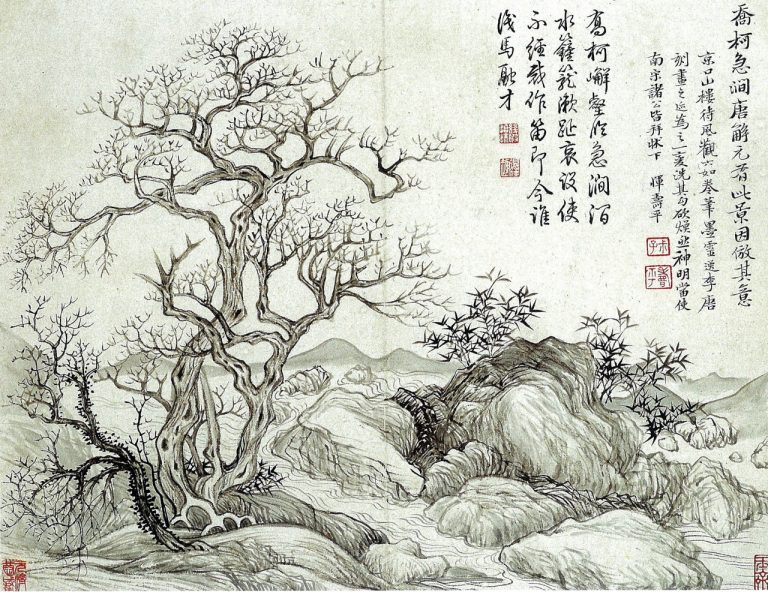 喬柯急澗唐解元有此景因倣其意
京口山樓待風觀六如卷筆墨靈逸李唐
刻畫之跡為之一變洗其勾斫煥然神明當使
南宋諸公皆拜牀下 惲壽平
高柯嶰壑急澗
水漱趾哀設使
不經裁作笛即今誰
識馬融才